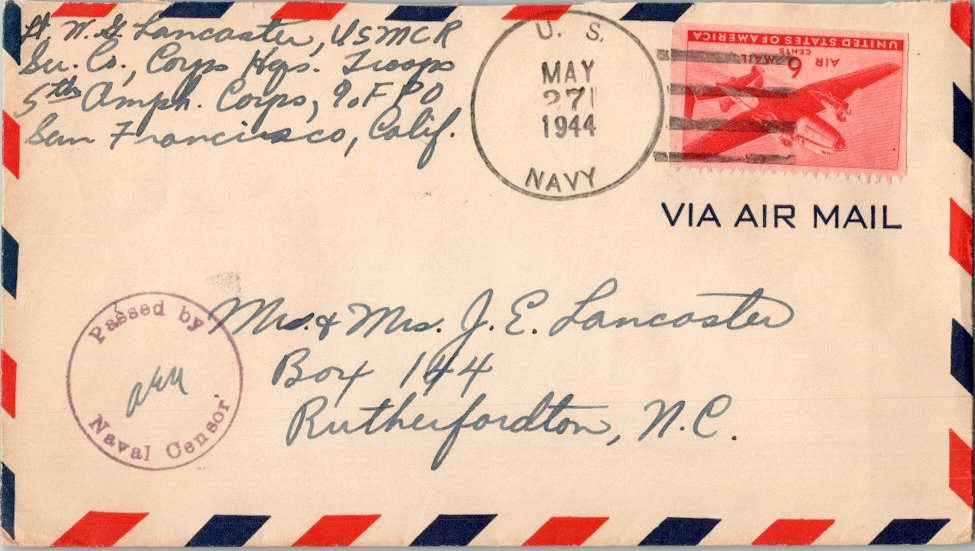 Lt. W. G. Lancaster, USMCR
Ser. Co., Corps Hqs. Troops
5th Amph. Corps, % F P O
San Francisco, Calif.
U. S.
MAY
27
1944
NAVY
UNITED STATES OF AMERICA
6 CENTS
AIR MAIL
VIA AIR MAIL
Passed by
Naval Censor
Mr. & Mrs. J. E. Lancaster
Box 144
Rutherfordton, N.C.